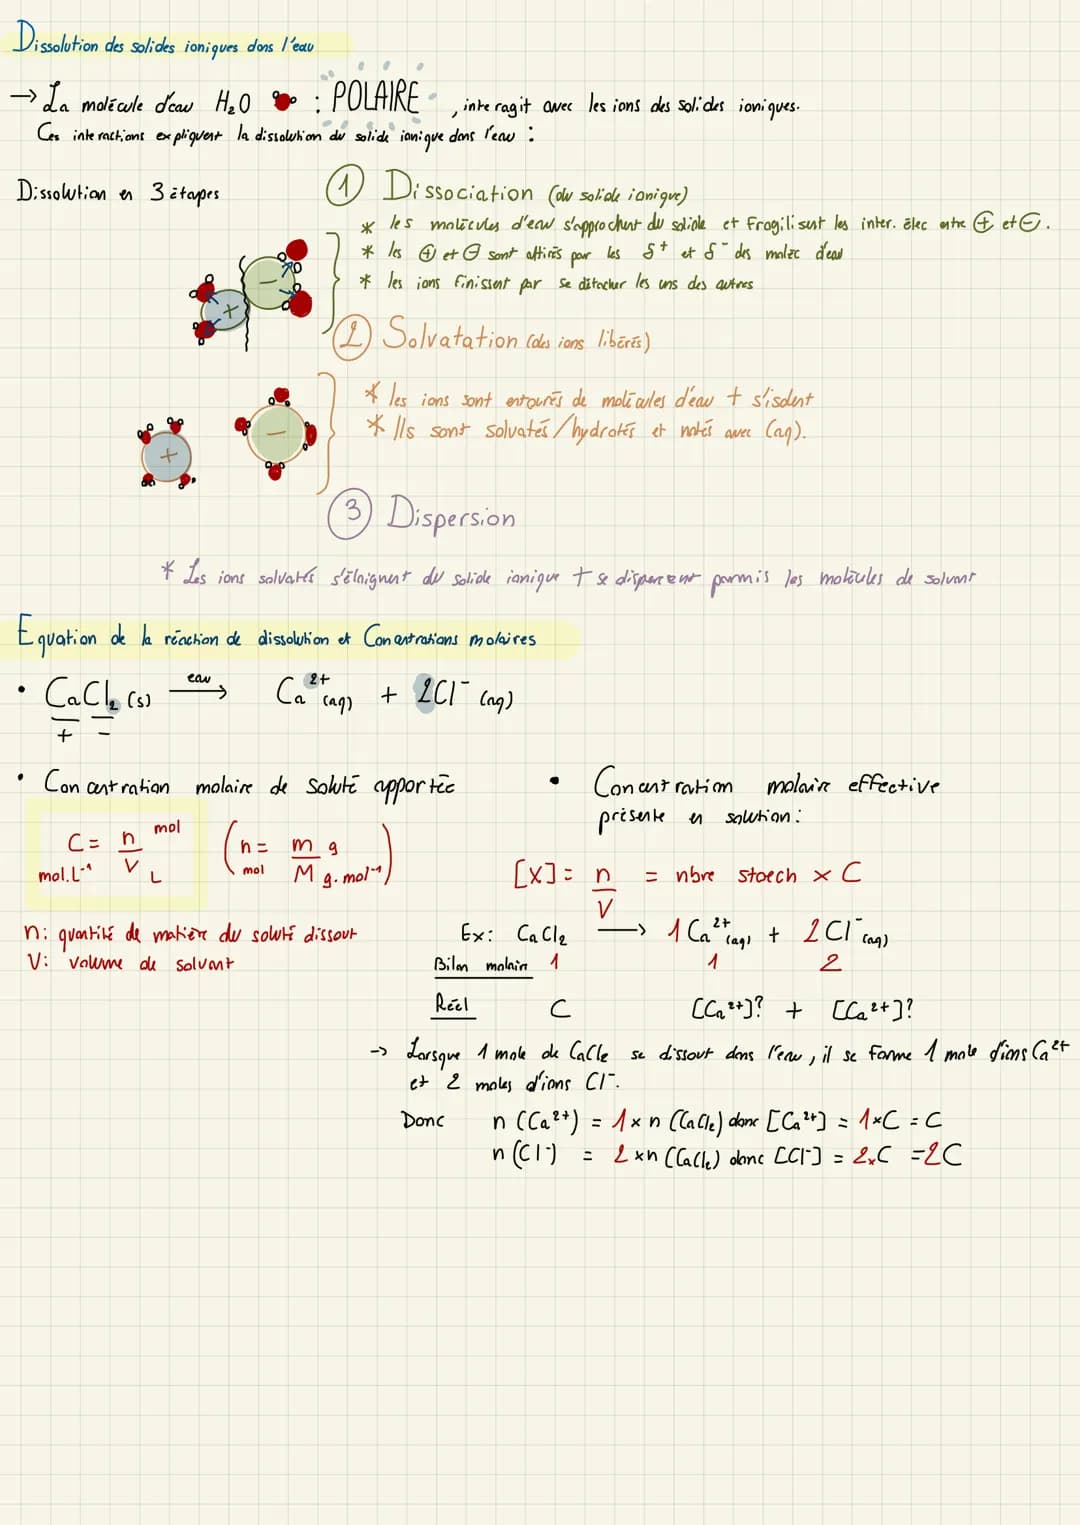 Dissolution des solides ioniques dans l'eau
→ La molécule d'eau H₂O : POLAIRE, interagit avec les ions des solides ioniques.
Ces interactions expliquent la dissolution du solide ionique dans l'eau :
Dissolution en 3 étapes
① Dissociation (du solide ionique)
* les molécules d'eau s'approchent du solide et Fragilisent les inter. élec entre ⊕ et ⊖.
* les ⊕ et ⊖ sont attirés par les δ⁺ et δ⁻ des moléc d'eau
* les ions finissent par se détacher les uns des autres
② Solvatation (des ions libérés)
* les ions sont entourés de molécules d'eau + s'isolent
* Ils sont solvatés/hydratés et notés avec (aq).
③ Dispersion
* Les ions solvatés s'éloignent du solide ionique + se dispercent parmis les molécules de solvant
Equation de la réaction de dissolution et Concentrations molaires
• CaCl₂ (s) eau→ Ca²⁺(aq) + 2Cl⁻(aq)
+ −
• Concentration molaire de soluté apportée
C = n/V mol L mol.L⁻¹ (n = m/M mol g g.mol⁻¹)
n: quantité de matière du soluté dissout
V: volume de solvant
• Concentration molaire effective
présente en solution :
[X] = n/V = nbre stoech × C
Ex: CaCl₂ → 1Ca²⁺(aq) + 2Cl⁻(aq)
Bilan molaire 1 1 2
Réel C [Ca²⁺]? + [Ca²⁺]?
→ Lorsque 1 mole de CaCl₂ se dissout dans l'eau, il se forme 1 mole d'ions Ca²⁺
et 2 moles d'ions Cl⁻.
Donc n(Ca²⁺) = 1×n(CaCl₂) donc [Ca²⁺] = 1×C = C
n(Cl⁻) = 2×n(CaCl₂) donc [Cl⁻] = 2×C = 2C